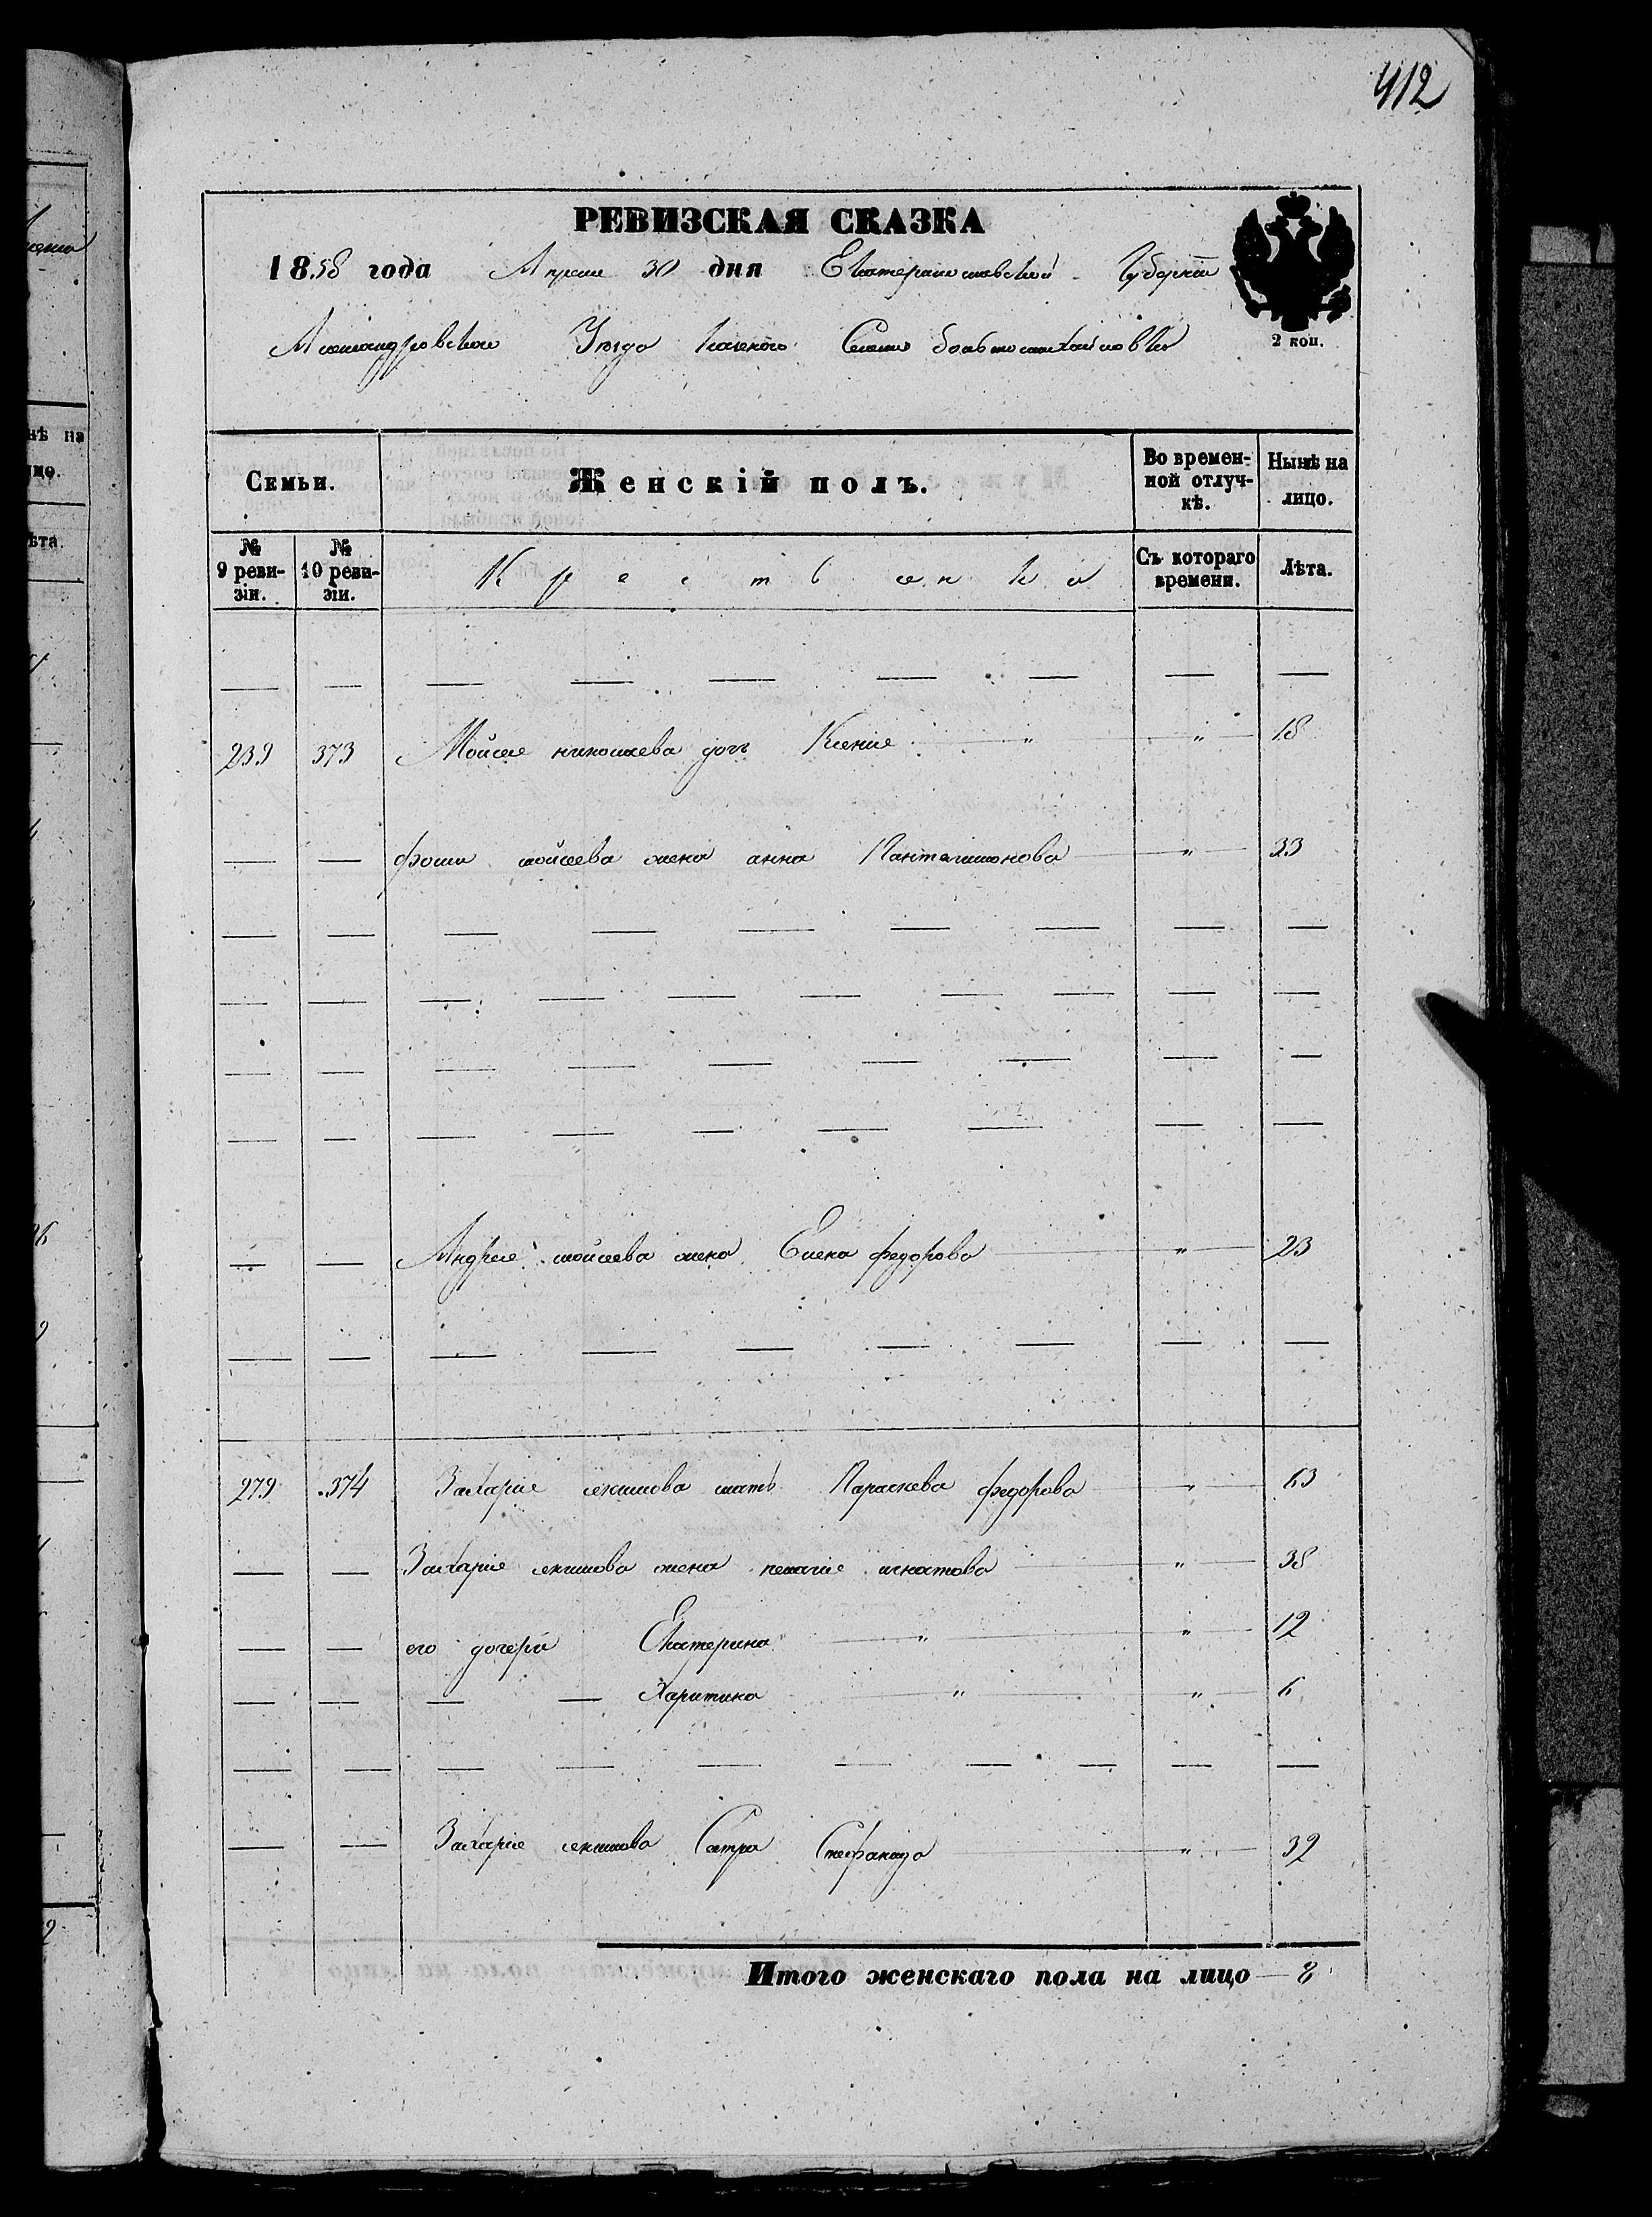 412
РЕВИЗСКАЯ СКАЗКА
1858 года Апреля 30 дня Екатеринославской Губернии
Александровского Уезда Казенного Селения больше михайловки
2 коп.
Семьи. Женскій полъ. Во временной отлучкѣ. Нынѣ на лицо.
№ 9 ревизіи. № 10 ревизіи. Крестьенки Съ котораго времени. Лѣта.
— — — — — — — — —
239 373 Мойсея николаева дочь Ксения " " 18
— — фомы мойсеева жена анна Панталимонова " 33
— — — — — — — — —
— — — — — — — — — —
— — — — — — — — —
— — — — — — — — —
— — Андрея мойсеева жена Елена федорова " 23
— — — — — — — — —
279 374 Захарія мать Параскева федорова " 63
— — Захарія жена пелагия игнатова " 38
— — его дочери Екатерина " " 12
— — — — Харитина " " 6
— — — — — — — — — —
— — Захарія Сестра Стефанида " 32
Итого женскаго пола на лицо 8